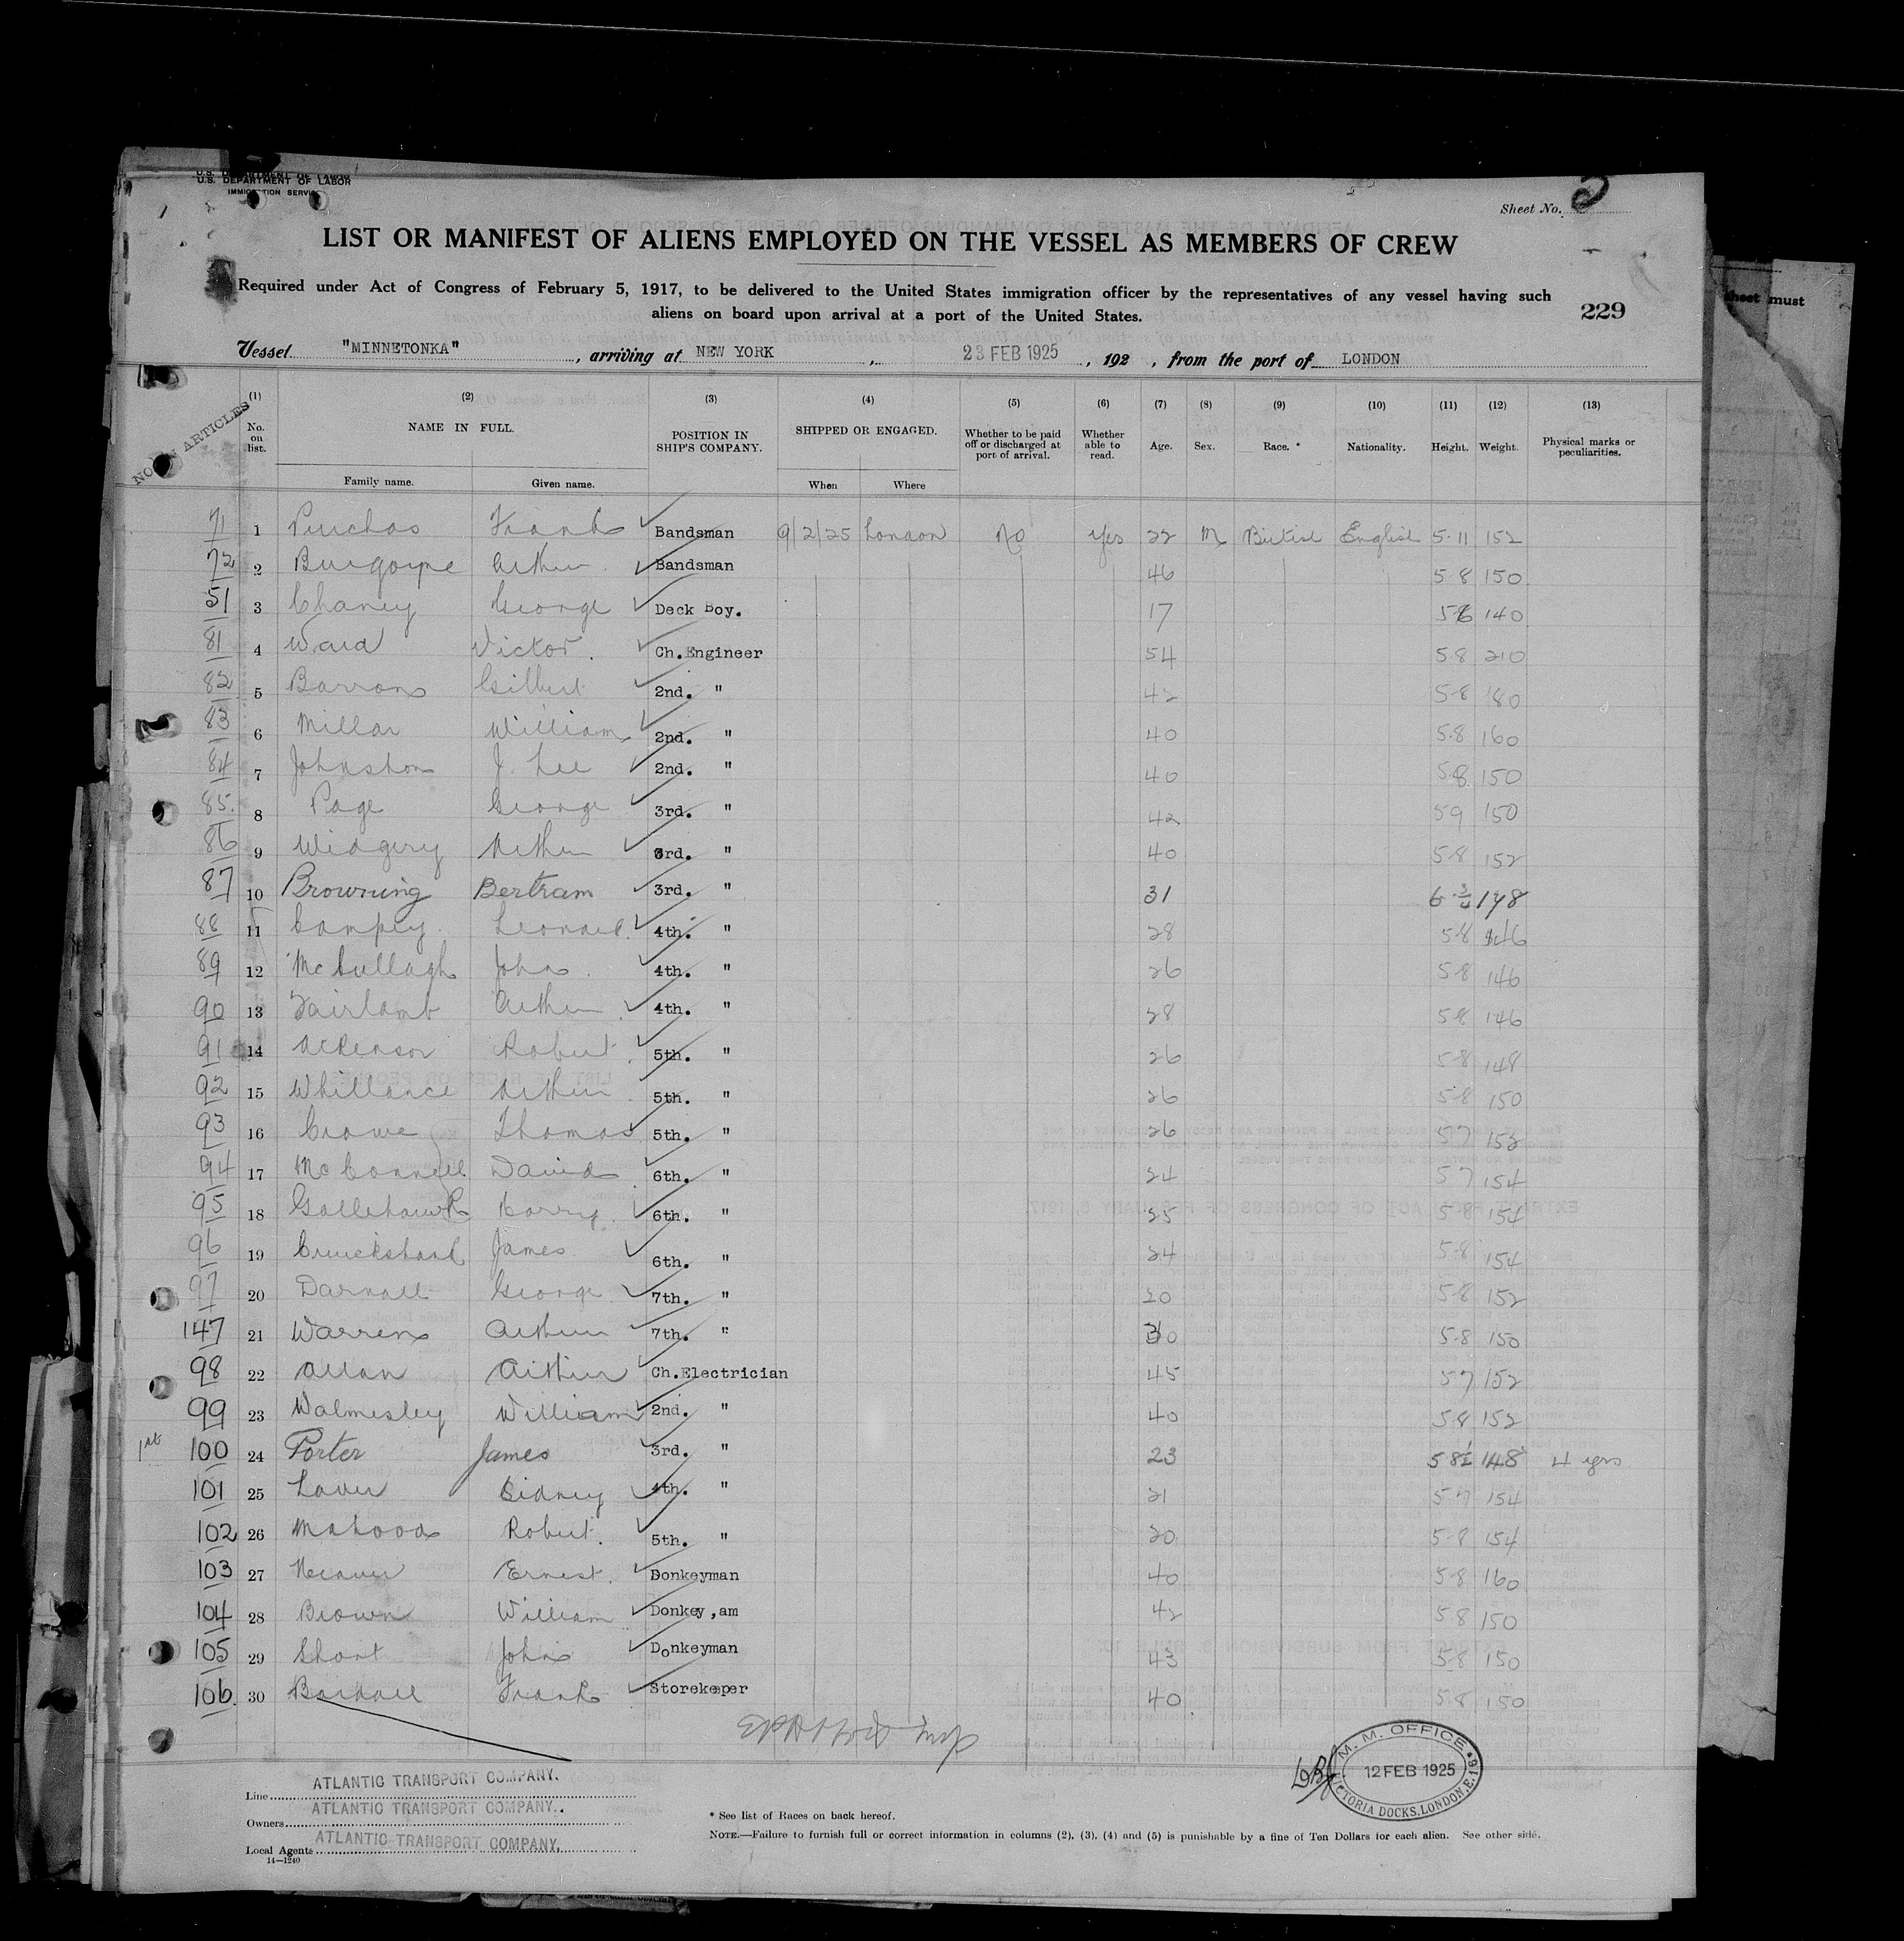 U.S. DEPARTMENT OF LABOR
IMMIGRATION SERVICE
Sheet No.
LIST OR MANIFEST OF ALIENS EMPLOYED ON THE VESSEL AS MEMBERS OF CREW
Required under Act of Congress of February 5, 1917, to be delivered to the United States immigration officer by the representatives of any vessel having such
aliens on board upon arrival at a port of the United States.
229
sheet must
Vessel "MINNETONKA", arriving at NEW YORK, 23 FEB 1925, 192 , from the port of LONDON
NO. ON ARTICLES
(1) (2) (3) (4) (5) (6) (7) (8) (9) (10) (11) (12) (13)
No. on list. NAME IN FULL. POSITION IN SHIP'S COMPANY. SHIPPED OR ENGAGED. Whether to be paid off or discharged at port of arrival. Whether able to read. Age. Sex. Race. * Nationality. Height. Weight. Physical marks or peculiarities.
Family name. Given name. When Where
71 1 Purchas Frank Bandsman 9/2/25 London No Yes 22 M British English 5-11 152
72 2 Burgoyne Arthur Bandsman 46 5 8 150
51 3 Chaney George Deck Boy. 17 5 6 140
81 4 Ward Victor. Ch.Engineer 54 5 8 210
82 5 Barrons Gilbert 2nd. " 42 5-8 180
83 6 Millar William 2nd. " 40 5.8 160
84 7 Johnston J. Lee 2nd. " 40 5.8 150
85. 8 Page George 3rd. " 42 5 9 150
86 9 Widgery Arthur 3rd. " 40 5-8 152
87 10 Browning Bertram 3rd. " 31 178
88 11 Campey. Leonard. 4th. " 28 5-8 146
89 12 McCullagh John. 4th. " 26 5-8 146
90 13 Fairlamb Arthur. 4th. " 28 5-8 146
91 14 Robert. 5th. " 26 5-8 148
92 15 Whillance Arthur. 5th. " 26 5-8 150
93 16 Crowe Thomas 5th. " 26 5 7 152
94 17 McConnell David. 6th. " 24 5 7 154
95 18 Gallehawk Harry. 6th. " 25 5 8 154
96 19 Cruickshank James 6th. " 24 5-8 154
97 20 Darnall George 7th. " 20 5-8 152
147 21 Warren Arthur 7th. " 30 5-8 150
98 22 Allan Arthur Ch.Electrician 45 5 7 152
99 23 Walmesley William 2nd. " 40 5 8 152
1st 100 24 Porter James 3rd. " 23 5 8½ 148 4 yrs
101 25 Laver Sidney 4th. " 21 5 7 154
102 26 Mahood Robert. 5th. " 20 5-8 154
103 27 Ernest. Donkeyman 40 5-8 160
104 28 Brown William Donkey,am 42 5-8 150
105 29 Short John Donkeyman 43 5-8 150
106. 30 Frank Storekeeper 40 5-8 150
I.M.M. OFFICE
12 FEB 1925
VICTORIA DOCKS, LONDON, E.16
Line ATLANTIC TRANSPORT COMPANY.
Owners ATLANTIC TRANSPORT COMPANY.
Local Agents ATLANTIC TRANSPORT COMPANY.
14—1240
* See list of Races on back hereof.
NOTE.—Failure to furnish full or correct information in columns (2), (3), (4) and (5) is punishable by a fine of Ten Dollars for each alien. See other side.